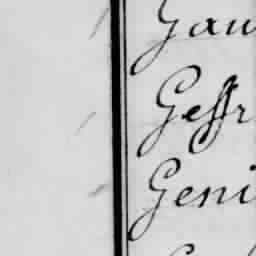 Gau
Geffr
Geni